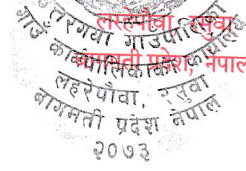 उत्तरगया गाउँपालिका
गाउँ कार्यपालिकाको कार्यालय
लहरेपौवा, रसुवा
बागमती प्रदेश, नेपाल
लहरेपौवा, रसुवा
बागमती प्रदेश नेपाल
२०७३